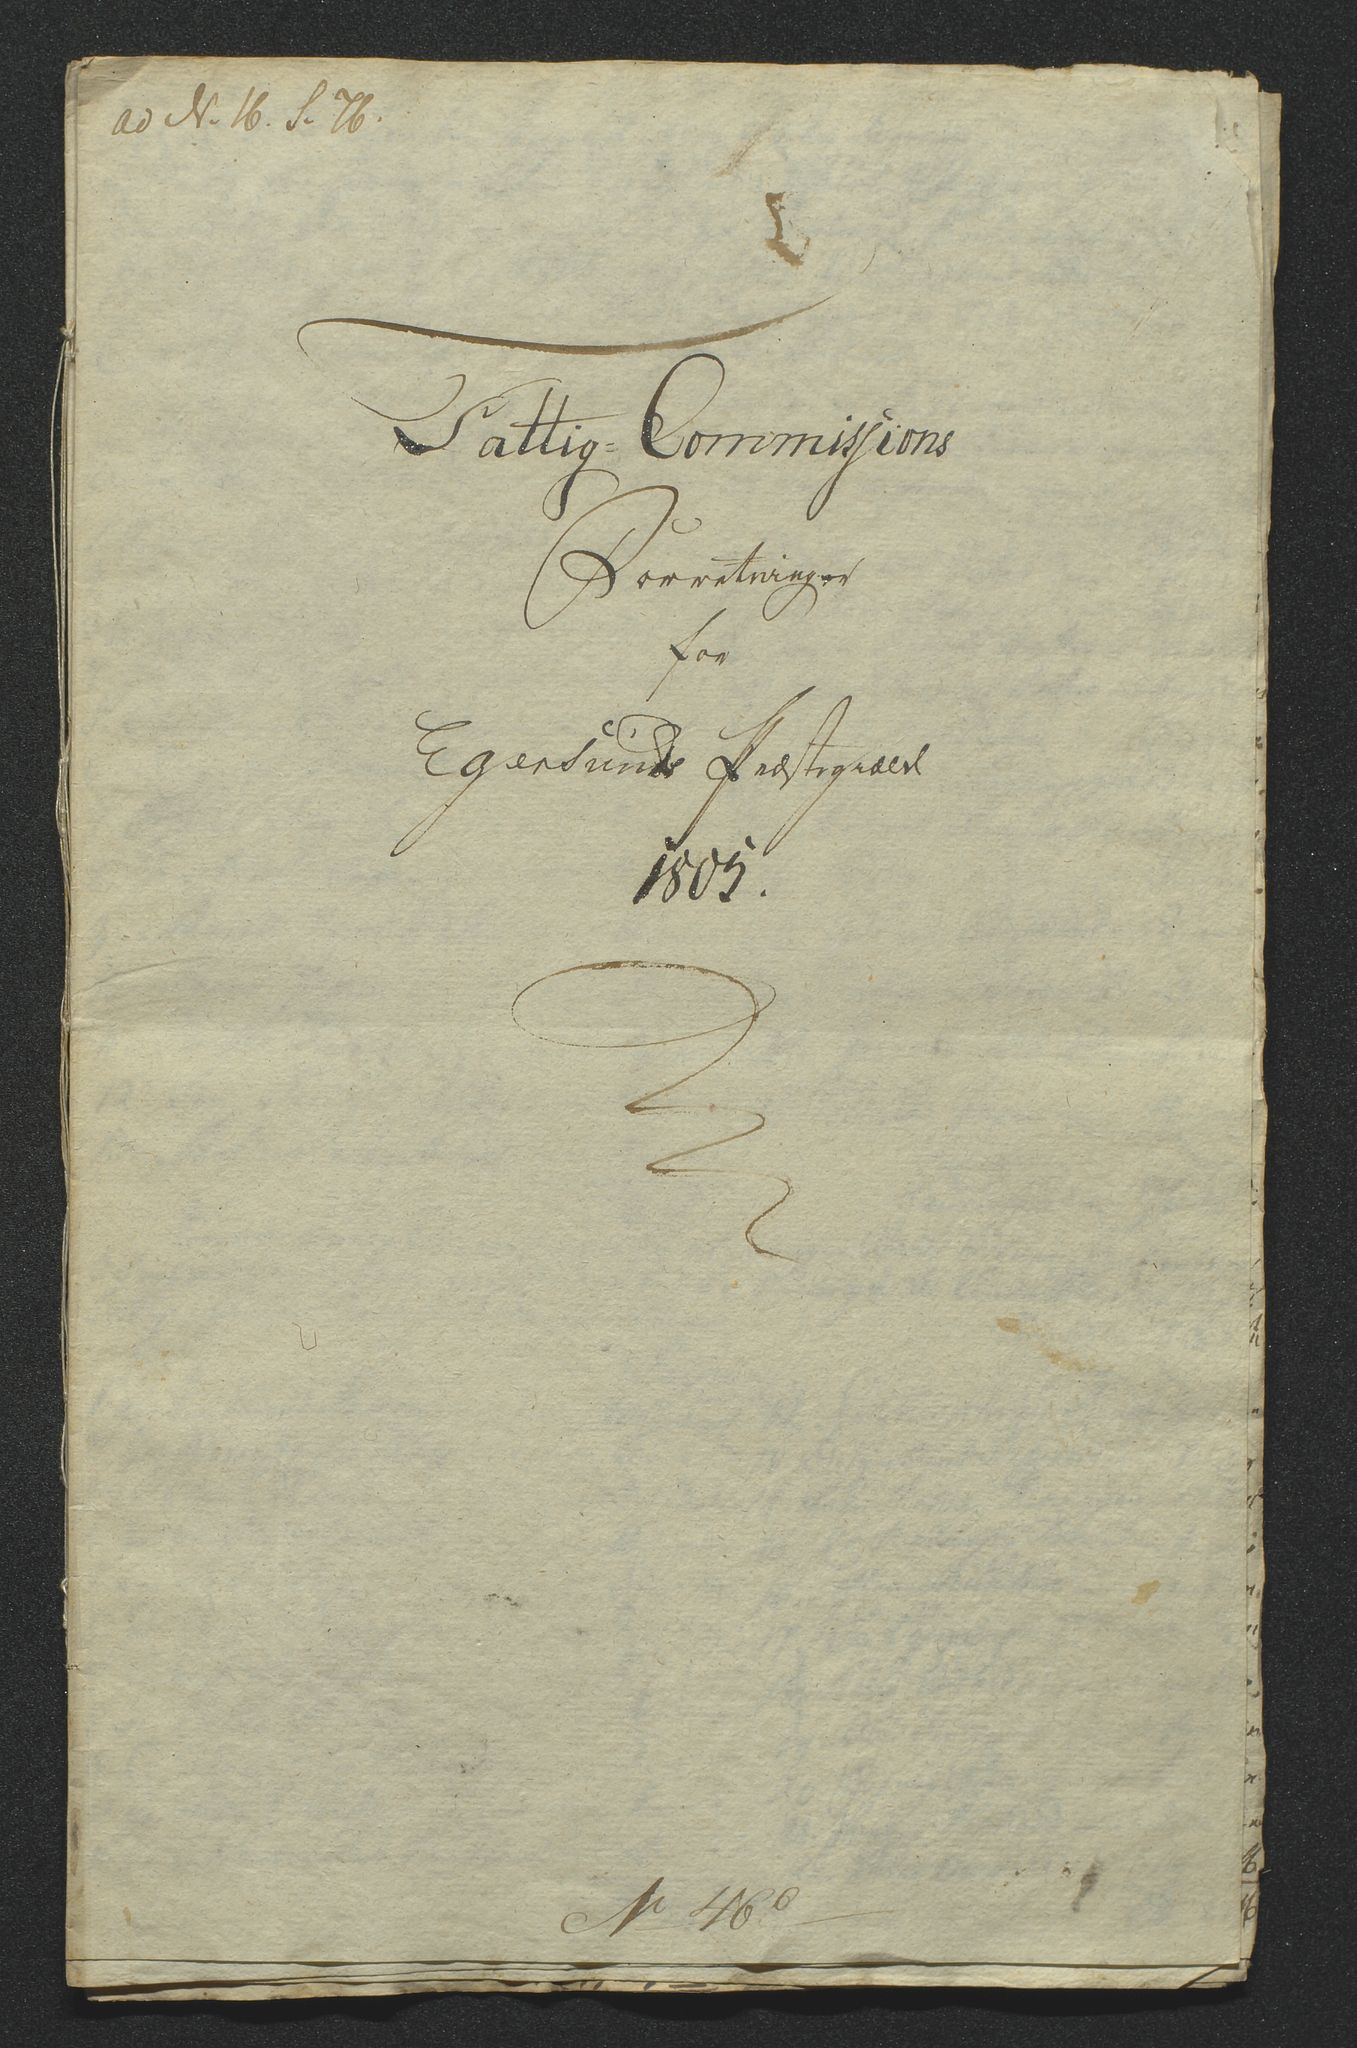 ad N. 16. S. 76.
Fattig= Commissions
Forretninger
for
Egersunds Præstegield
1805.
N 46 c